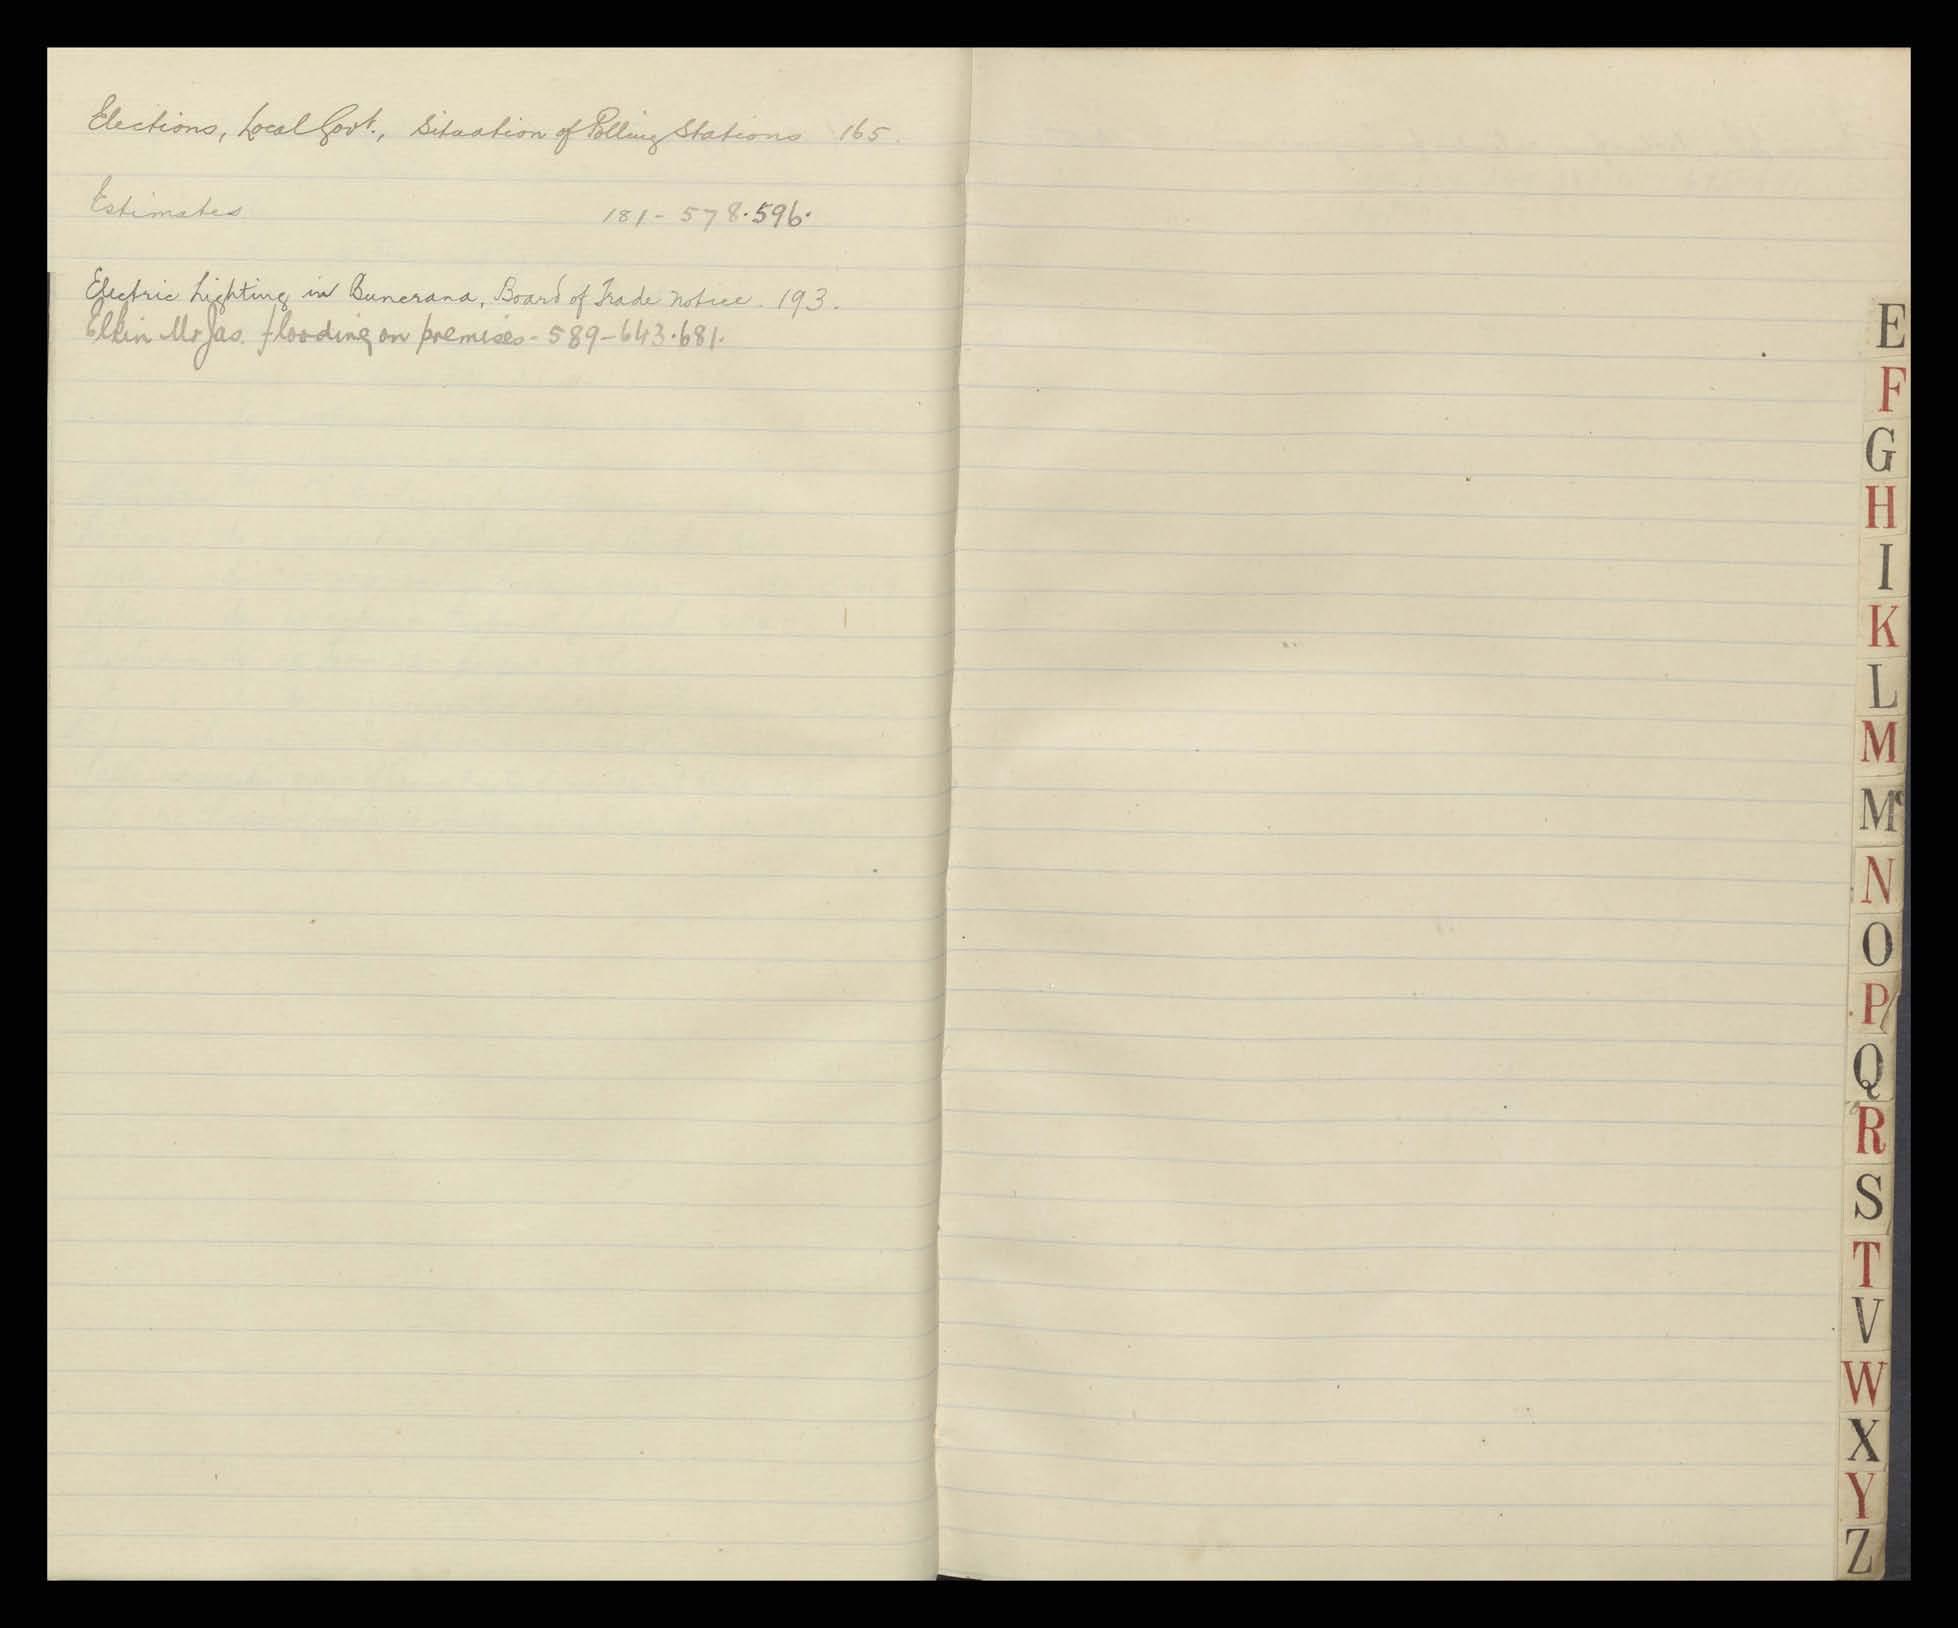 Elections, Local Govt., Situation of Polling Stations 165.
Estimates 181 - 578. 596.
Electric Lighting in Buncrana, Board of Trade notice. 193.
Elkin Mr Jas. flooding on premises - 589 - 643. 681.
E
F
G
H
I
K
L
M
Mc
N
O
P
Q
R
S
T
V
W
X
Y
Z